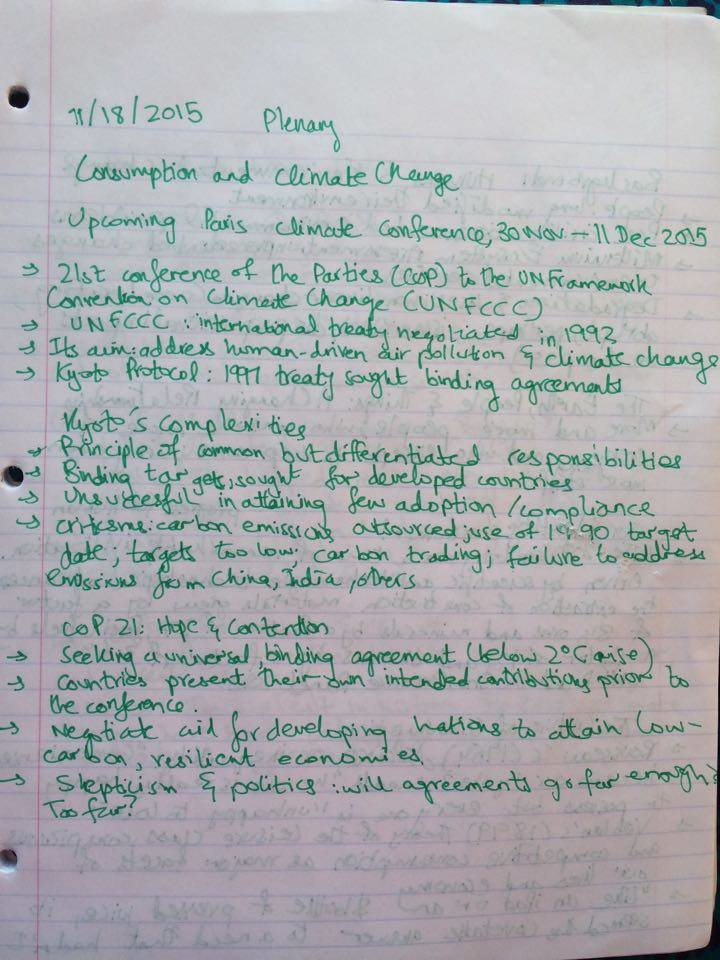 11/18/2015 Plenary
Consumption and Climate Change
Upcoming Paris Climate Conference, 30 Nov – 11 Dec 2015
→ 21st conference of the Parties (COP) to the UN Framework
Convention on Climate Change (UNFCCC)
→ UNFCCC: international treaty negotiated in 1992
→ Its aim: address human-driven air pollution & climate change
→ Kyoto Protocol: 1997 treaty sought binding agreements
Kyoto's complexities
→ Principle of common but differentiated responsibilities
→ Binding targets, sought for developed countries
→ Unsuccessful in attaining few adoption / compliance
→ criticisms: carbon emissions outsourced; use of 1990 target
date; targets too low, carbon trading; failure to address
emissions from China, India, others
COP 21: Hope & Contention
→ Seeking a universal, binding agreement (below 2°C rise)
→ Countries present their own intended contributions prior to
the conference.
→ Negotiate aid for developing nations to attain low-
carbon, resilient economies
→ Skepticism & politics: will agreements go far enough?
Too far?